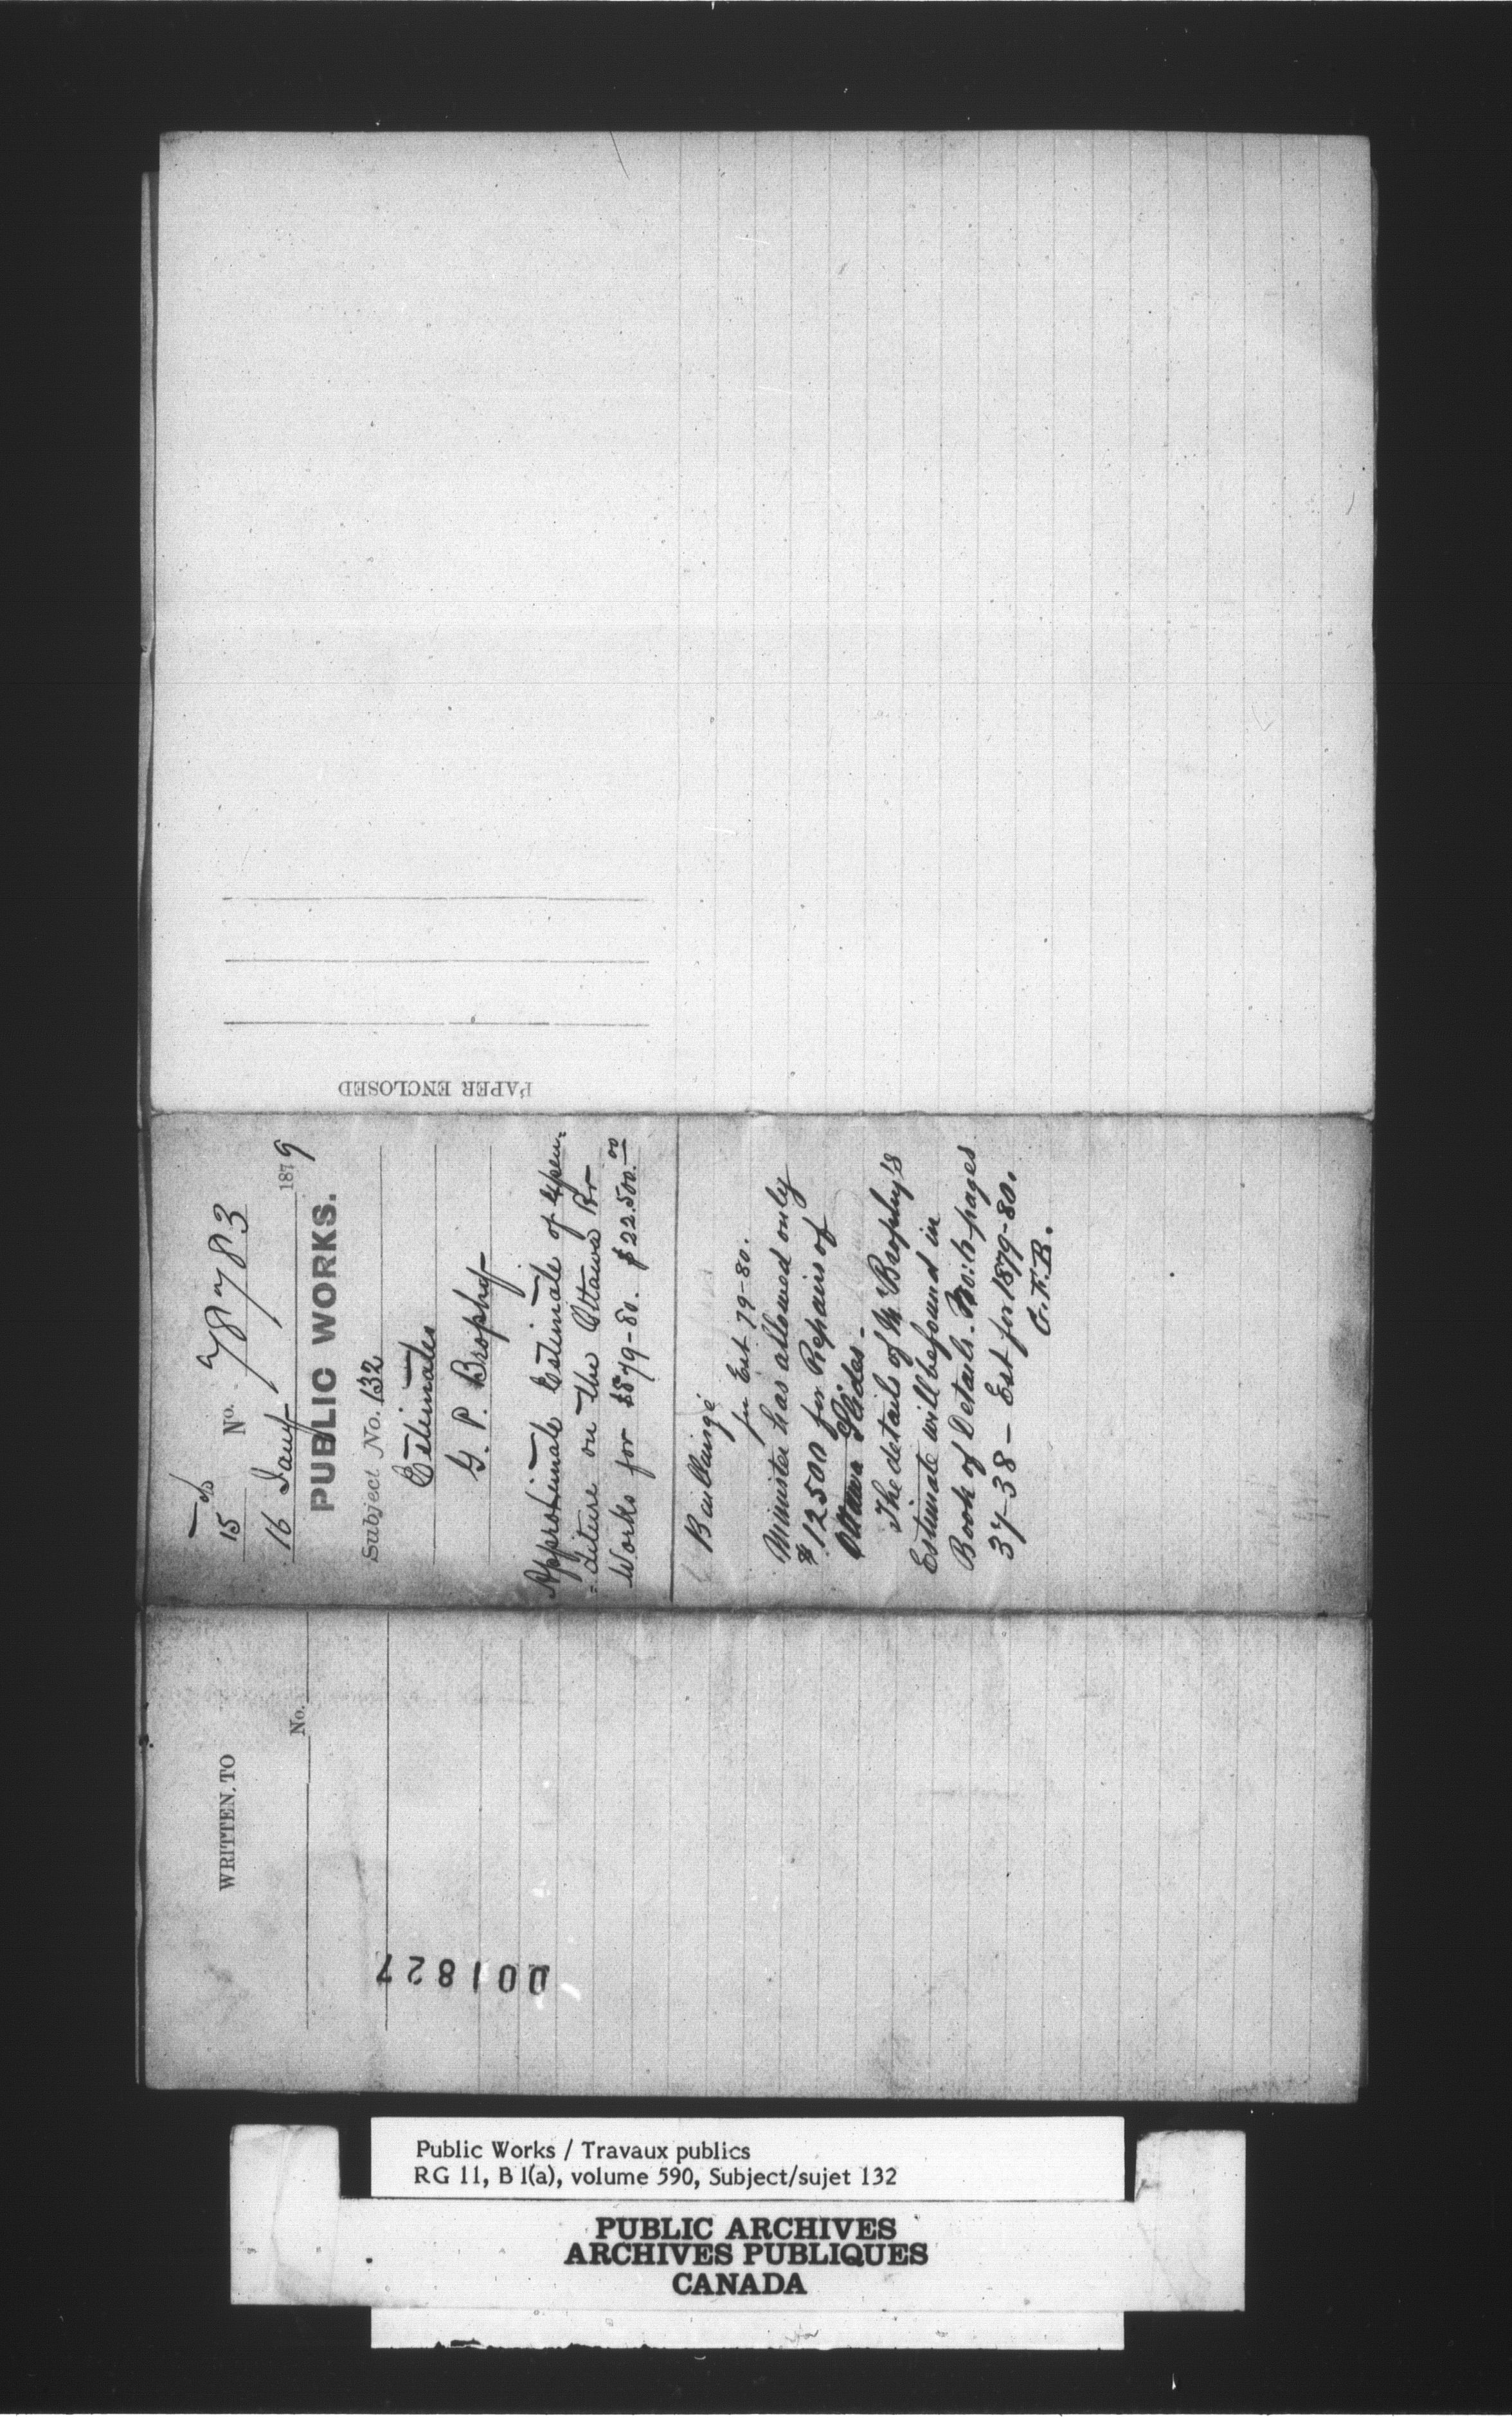 PAPER ENCLOSED
15 No. 78783
16 Jany 1879
PUBLIC WORKS.
Subject No. 132
Estimates
G. P. Brophy
Approximate Estimate of Expen=
=diture on the Ottawa Rr
Works for 1879-80. $22.500.00
Baillairgé
for Est 79-80.
Minister has allowed only
$12500 for Repairs of
Ottawa Slides -
The details of Mr Brophy's
Estimate will be found in
Book of Details. No: 6 pages
37-38 - Est for 1879-80.
G.F.B.
WRITTEN TO
No.
001827
Public Works / Travaux publics
RG 11, B 1(a), volume 590, Subject/sujet 132
PUBLIC ARCHIVES
ARCHIVES PUBLIQUES
CANADA